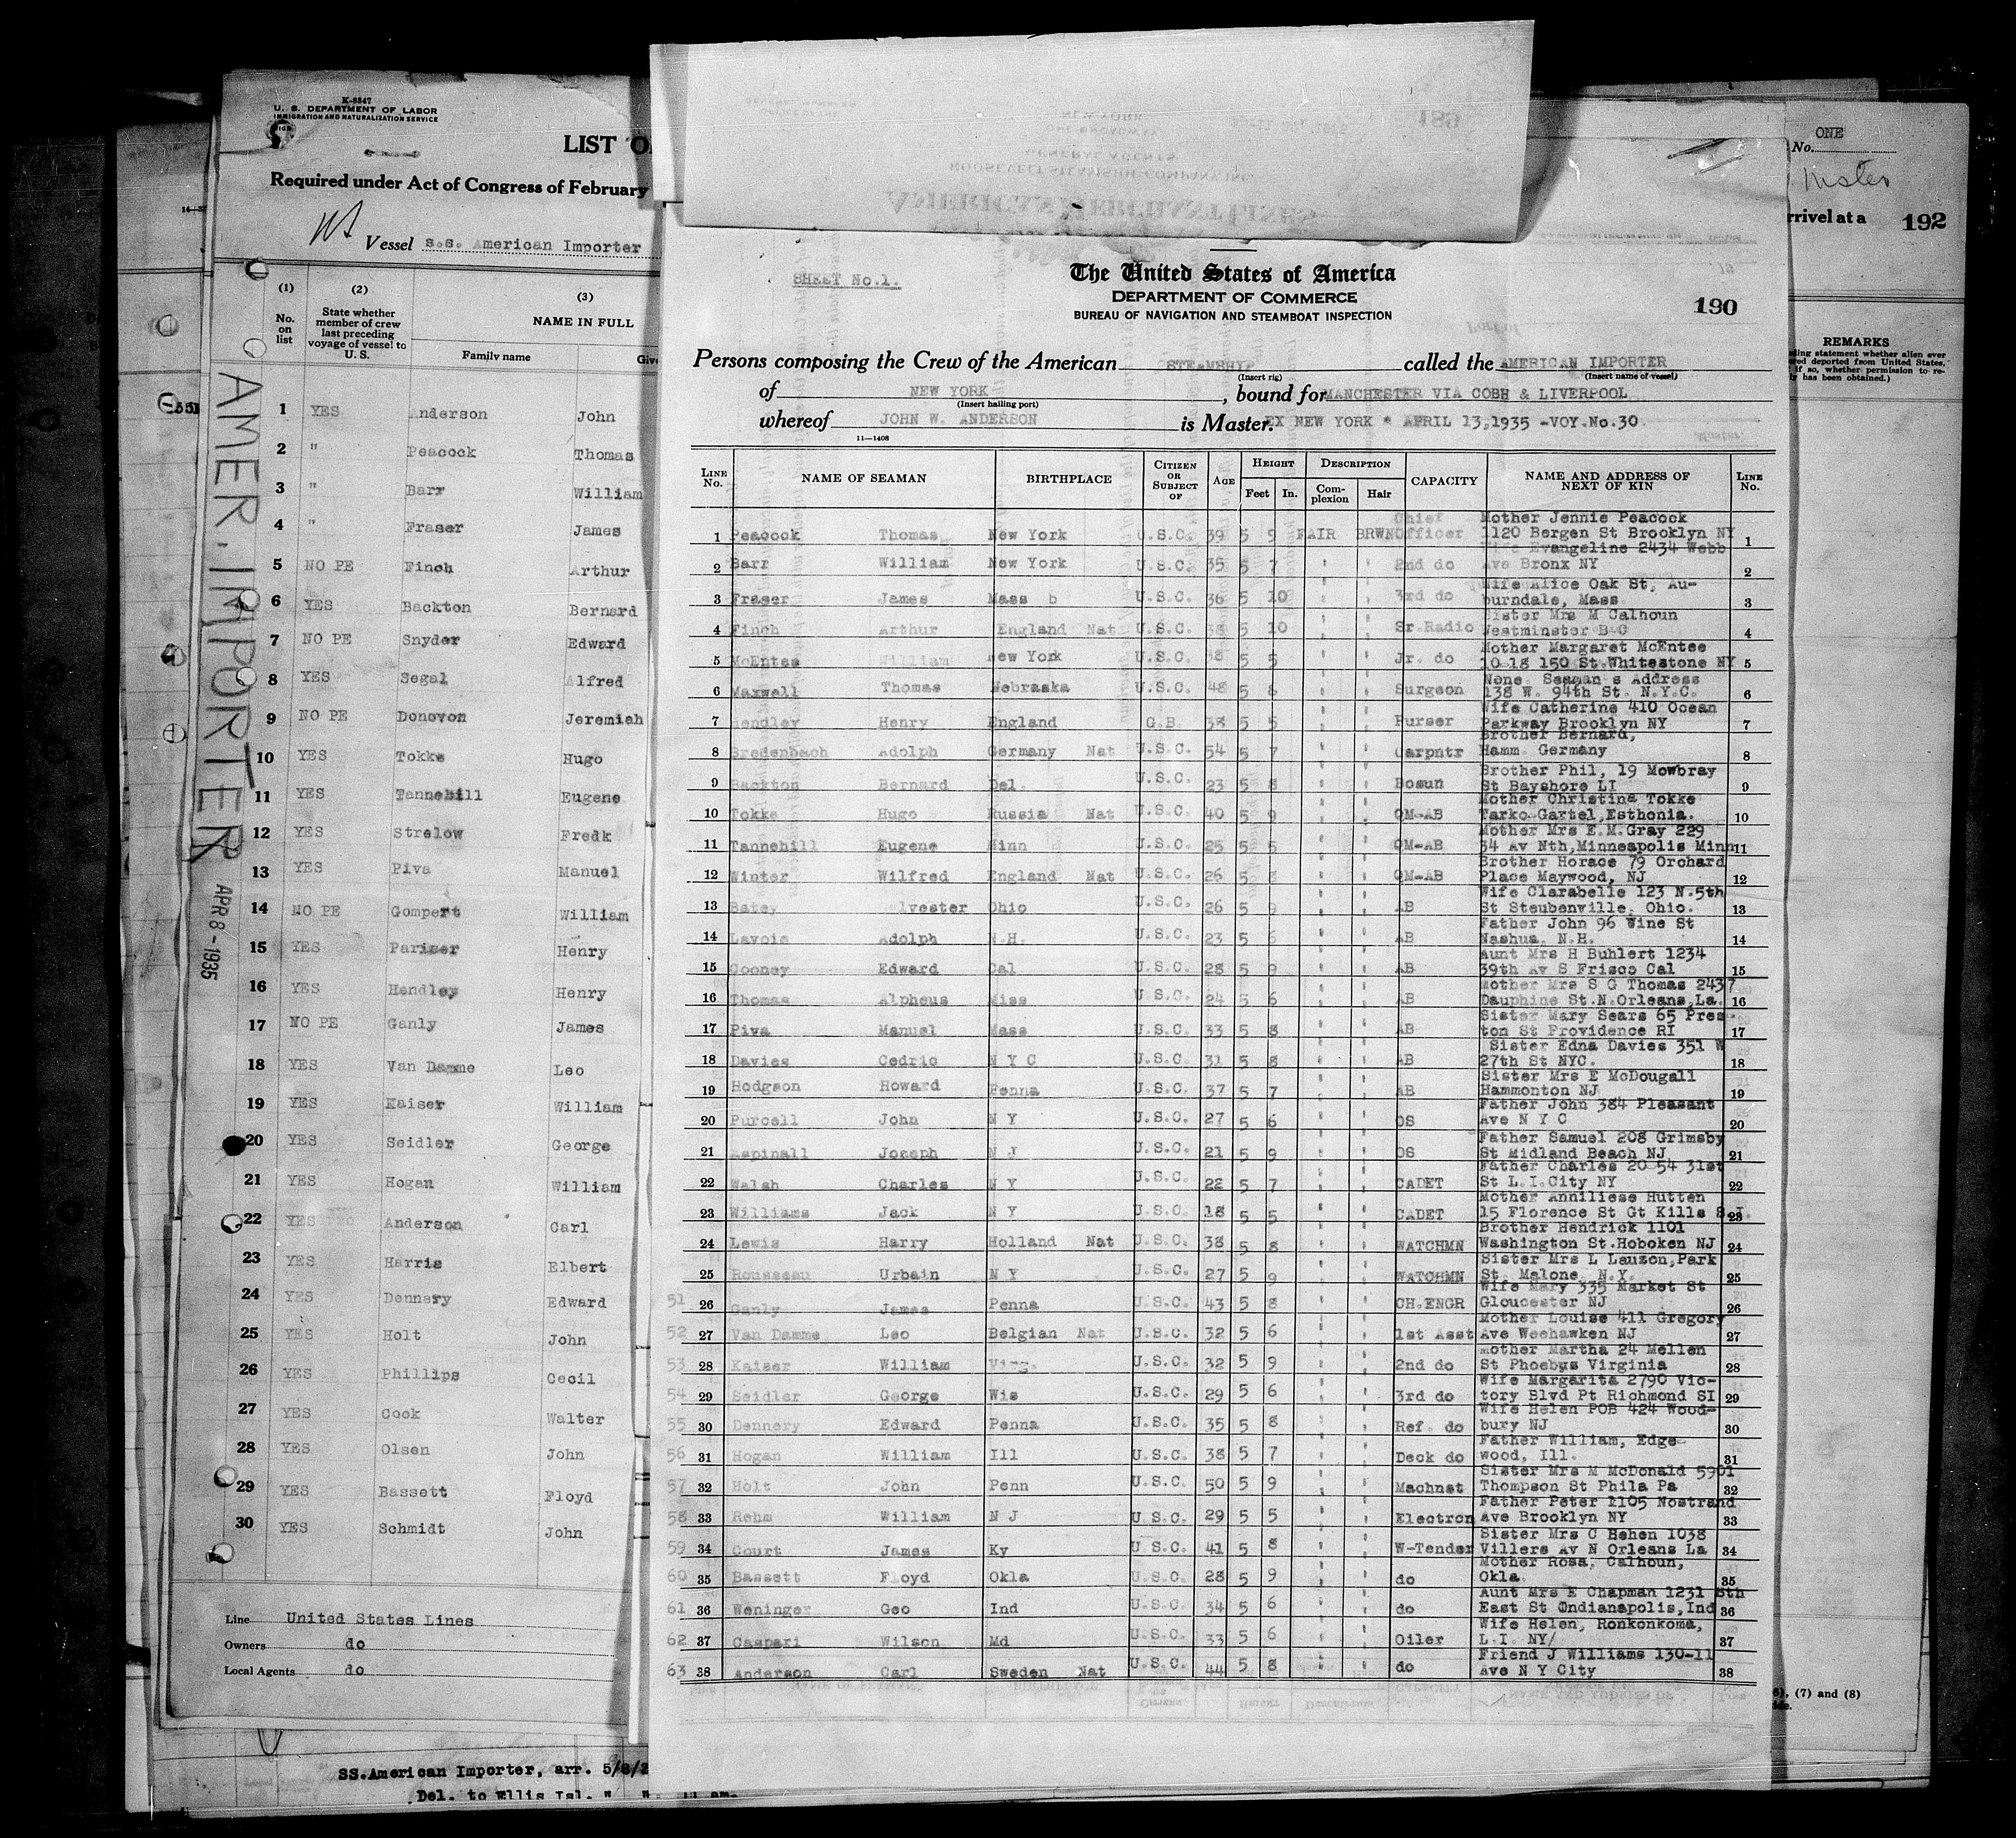 K-8347
U. S. DEPARTMENT OF LABOR
IMMIGRATION AND NATURALIZATION SERVICE
LIST O
Required under Act of Congress of February
Vessel s.s. American Importer
(1) (2) (3)
No. on list
State whether member of crew last preceding voyage of vessel to U. S.
NAME IN FULL
Family name Give
1 YES Anderson John
2 " Peacock Thomas
3 " Barr William
4 " Fraser James
5 NO PE Finch Arthur
6 YES Backton Bernard
7 NO PE Snyder Edward
8 YES Segal Alfred
9 NO PE Donovon Jeremiah
10 YES Tokke Hugo
11 YES Tannehill Eugene
12 YES Strelow Fredk
13 YES Piva Manuel
14 NO PE Gompert William
15 YES Pariser Henry
16 YES Hendley Henry
17 NO PE Ganly James
18 YES Van Damme Leo
19 YES Kaiser William
20 YES Seidler George
21 YES Hogan William
22 YES Anderson Carl
23 YES Harris Elbert
24 YES Dennery Edward
25 YES Holt John
26 YES Phillips Cecil
27 YES Cook Walter
28 YES Olsen John
29 YES Bassett Floyd
30 YES Schmidt John
Line United States Lines
Owners do
Local Agents do
AMER. IMPORTER
APR 8 - 1935
SS.American Importer, arr. 5/8/
Del. to Ellis Isl.
SHEET No.1.
The United States of America
DEPARTMENT OF COMMERCE
BUREAU OF NAVIGATION AND STEAMBOAT INSPECTION
190
Persons composing the Crew of the American STEAMSHIP called the AMERICAN IMPORTER
(Insert rig) (Insert name of vessel)
of NEW YORK , bound for MANCHESTER VIA COBH & LIVERPOOL
(Insert hailing port)
whereof JOHN W. ANDERSON is Master. EX NEW YORK * APRIL 13,1935 -VOY.No.30
11—1408
LINE No. NAME OF SEAMAN BIRTHPLACE CITIZEN OR SUBJECT OF AGE HEIGHT Feet In. DESCRIPTION Complexion Hair CAPACITY NAME AND ADDRESS OF NEXT OF KIN LINE No.
1 Peacock Thomas New York U.S.C. 39 5 9 FAIR BRWN Chief Officer Mother Jennie Peacock 1120 Bergen St Brooklyn NY 1
2 Barr William New York U.S.C. 35 5 7 " " 2nd do Wife Evangeline 2434 Webb Ave Bronx NY 2
3 Fraser James Mass b U.S.C. 36 5 10 " " 3rd do Wife Alice Oak St, Auburndale, Mass 3
4 Finch Arthur England Nat U.S.C. 38 5 10 " " Sr.Radio Sister Mrs M Calhoun Westminster B C 4
5 McEntee William New York U.S.C. 5 5 " " Jr. do Mother Margaret McEntee 10 18 150 St Whitestone NY 5
6 Maxwell Thomas Nebraska U.S.C. 48 5 8 " " Surgeon None Seaman s Address 138 W. 94th St. N.Y.C. 6
7 Hendley Henry England G.B. 38 5 5 " " Purser Wife Catherine 410 Ocean Parkway Brooklyn NY 7
8 Bredenbach Adolph Germany Nat U.S.C. 54 5 7 " " Carpntr Brother Bernard, Hamm Germany 8
9 Backton Bernard Del. U.S.C. 23 5 8 " " Bosun Brother Phil, 19 Mowbray St Bayshore LI 9
10 Tokke Hugo Russia Nat U.S.C. 40 5 9 " " QM-AB Mother Christina Tokke Tarko Gartel,Esthonia. 10
11 Tannehill Eugene Minn U.S.C. 25 5 5 " " QM-AB Mother Mrs E.M.Gray 229 34 Av Nth,Minneapolis Minn 11
12 Winter Wilfred England Nat U.S.C. 26 5 8 " " QM-AB Brother Horace 79 Orchard Place Maywood, NJ 12
13 Batey Sylvester Ohio U.S.C. 26 5 9 " " AB Wife Clarabelle 123 N.5th St Steubenville, Ohio. 13
14 Lavoie Adolph N.H. U.S.C. 23 5 6 " " AB Father John 96 Wine St Nashua, N.H. 14
15 Cooney Edward Cal U.S.C. 28 5 9 " " AB Aunt Mrs H Buhlert 1234 39th Av S Frisco Cal 15
16 Thomas Alpheus Miss U.S.C. 24 5 6 " " AB Mother Mrs S G Thomas 2437 Dauphine St.N.Orleans,La. 16
17 Piva Manuel Mass U.S.C. 33 5 8 " " AB Sister Mary Sears 65 Preston St Providence RI 17
18 Davies Cedric N Y C U.S.C. 31 5 8 " " AB Sister Edna Davies 351 W 27th St NYC. 18
19 Hodgson Howard Penna U.S.C. 37 5 7 " " AB Sister Mrs E McDougall Hammonton NJ 19
20 Purcell John N Y U.S.C. 27 5 6 " " OS Father John 384 Pleasant Ave N Y C 20
21 Aspinall Joseph N J U.S.C. 21 5 9 " " OS Father Samuel 208 Grimsby St Midland Beach NJ 21
22 Walsh Charles N Y U.S.C. 22 5 7 " " CADET Father Charles 20 54 31st St L.I.City NY 22
23 Williams Jack N Y U.S.C. 18 5 5 " " CADET Mother Anniliese Hutten 15 Florence St Gt Kills S.I. 23
24 Lewis Harry Holland Nat U.S.C. 38 5 8 " " WATCHMN Brother Hendrick 1101 Washington St.Hoboken NJ 24
25 Rousseau Urbain N Y U.S.C. 27 5 9 " " WATCHMN Sister Mrs L Lauzon,Park St, Malone, N.Y. 25
51 26 Ganly James Penna U.S.C. 43 5 8 " " CH.ENGR Wife Mary 335 Market St Gloucester NJ 26
52 27 Van Damme Leo Belgian Nat U.S.C. 32 5 6 " " 1st Asst Mother Louise 411 Gregory Ave Weehawken NJ 27
53 28 Kaiser William Virg. U.S.C. 32 5 9 " " 2nd do Mother Martha 24 Mellen St Phoebus Virginia 28
54 29 Seidler George Wis U.S.C. 29 5 6 " " 3rd do Wife Margarita 2790 Victory Blvd Pt Richmond SI 29
55 30 Dennery Edward Penna U.S.C. 35 5 8 " " Ref. do Wife Helen POB 424 Woodbury NJ 30
56 31 Hogan William Ill U.S.C. 38 5 7 " " Deck do Father William, Edgewood, Ill. 31
57 32 Holt John Penn U.S.C. 50 5 9 " " Machnst Sister Mrs M McDonald 5901 Thompson St Phila Pa 32
58 33 Rehm William N J U.S.C. 29 5 5 " " Electron Father Peter 1105 Nostrand Ave Brooklyn NY 33
59 34 Court James Ky U.S.C. 41 5 8 " " W-Tender Sister Mrs C Hehen 1038 Villers Av N Orleans La 34
60 35 Bassett Floyd Okla U.S.C. 28 5 9 " " do Mother Rosa, Calhoun, Okla. 35
61 36 Weninger Geo Ind U.S.C. 34 5 6 " " do Aunt Mrs E Chapman 1231 8th East St Indianapolis,Ind 36
62 37 Caspari Wilson Md U.S.C. 33 5 6 " " Oiler Wife Helen, Ronkonkoma, L.I. NY/ 37
63 38 Anderson Carl Sweden Nat U.S.C. 44 5 8 " " do Friend J Williams 130-11 Ave N Y City 38
ONE
No.
rrivel at a 192
REMARKS
ding statement whether alien ever
red deported from United States,
if so, whether permission to re-
ly has been obtained.)
6), (7) and (8)